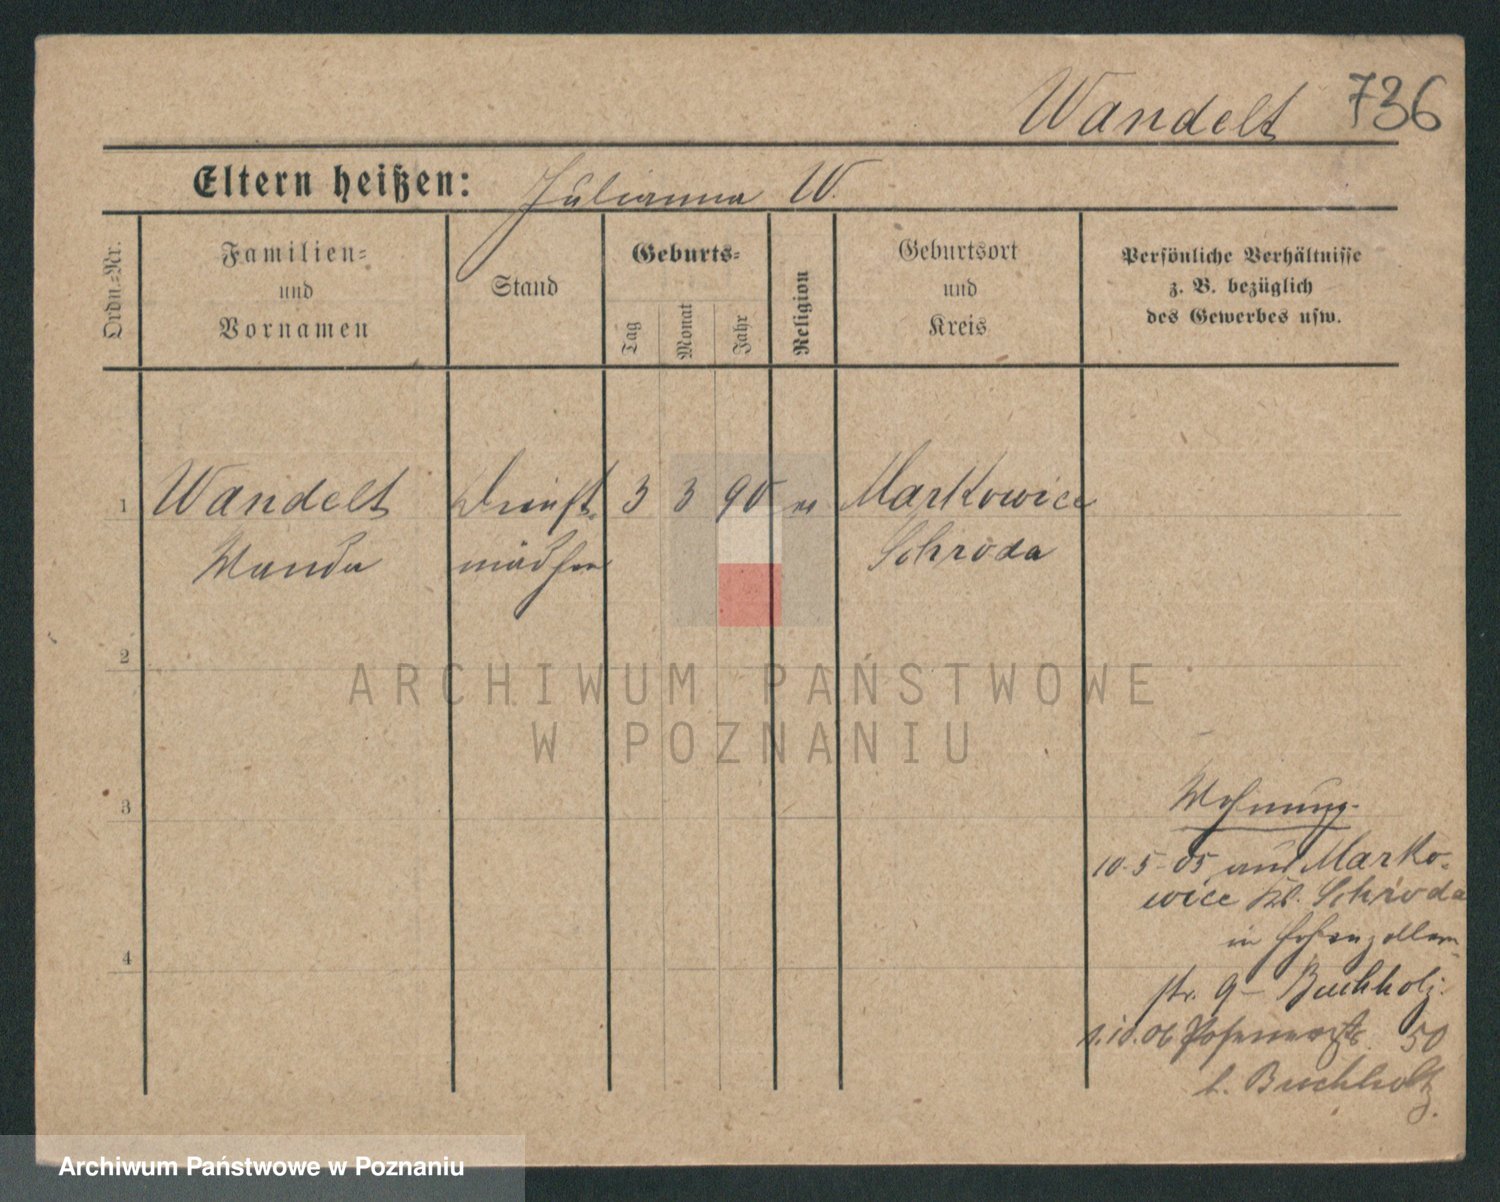 Wandelt 736
Eltern heißen: Julianna W.
Ordn.-Nr.
Familien-
und
Vornamen
Stand
Geburts-
Tag
Monat
Jahr
Religion
Geburtsort
und
Kreis
Persönliche Verhältnisse
z. B. bezüglich
des Gewerbes usw.
1 Wandelt Dienst- 3 3 90 Markowice
Wanda mädchen Schroda
2
ARCHIWUM PAŃSTWOWE
W POZNANIU
3
Wohnung.
10-5-05 aus Marko-
wice Kr. Schroda
in Hohenzollern-
4
str. 9 - Buchholz.
1.10.06 Posenerstr. 50
b. Buchholtz.
Archiwum Państwowe w Poznaniu